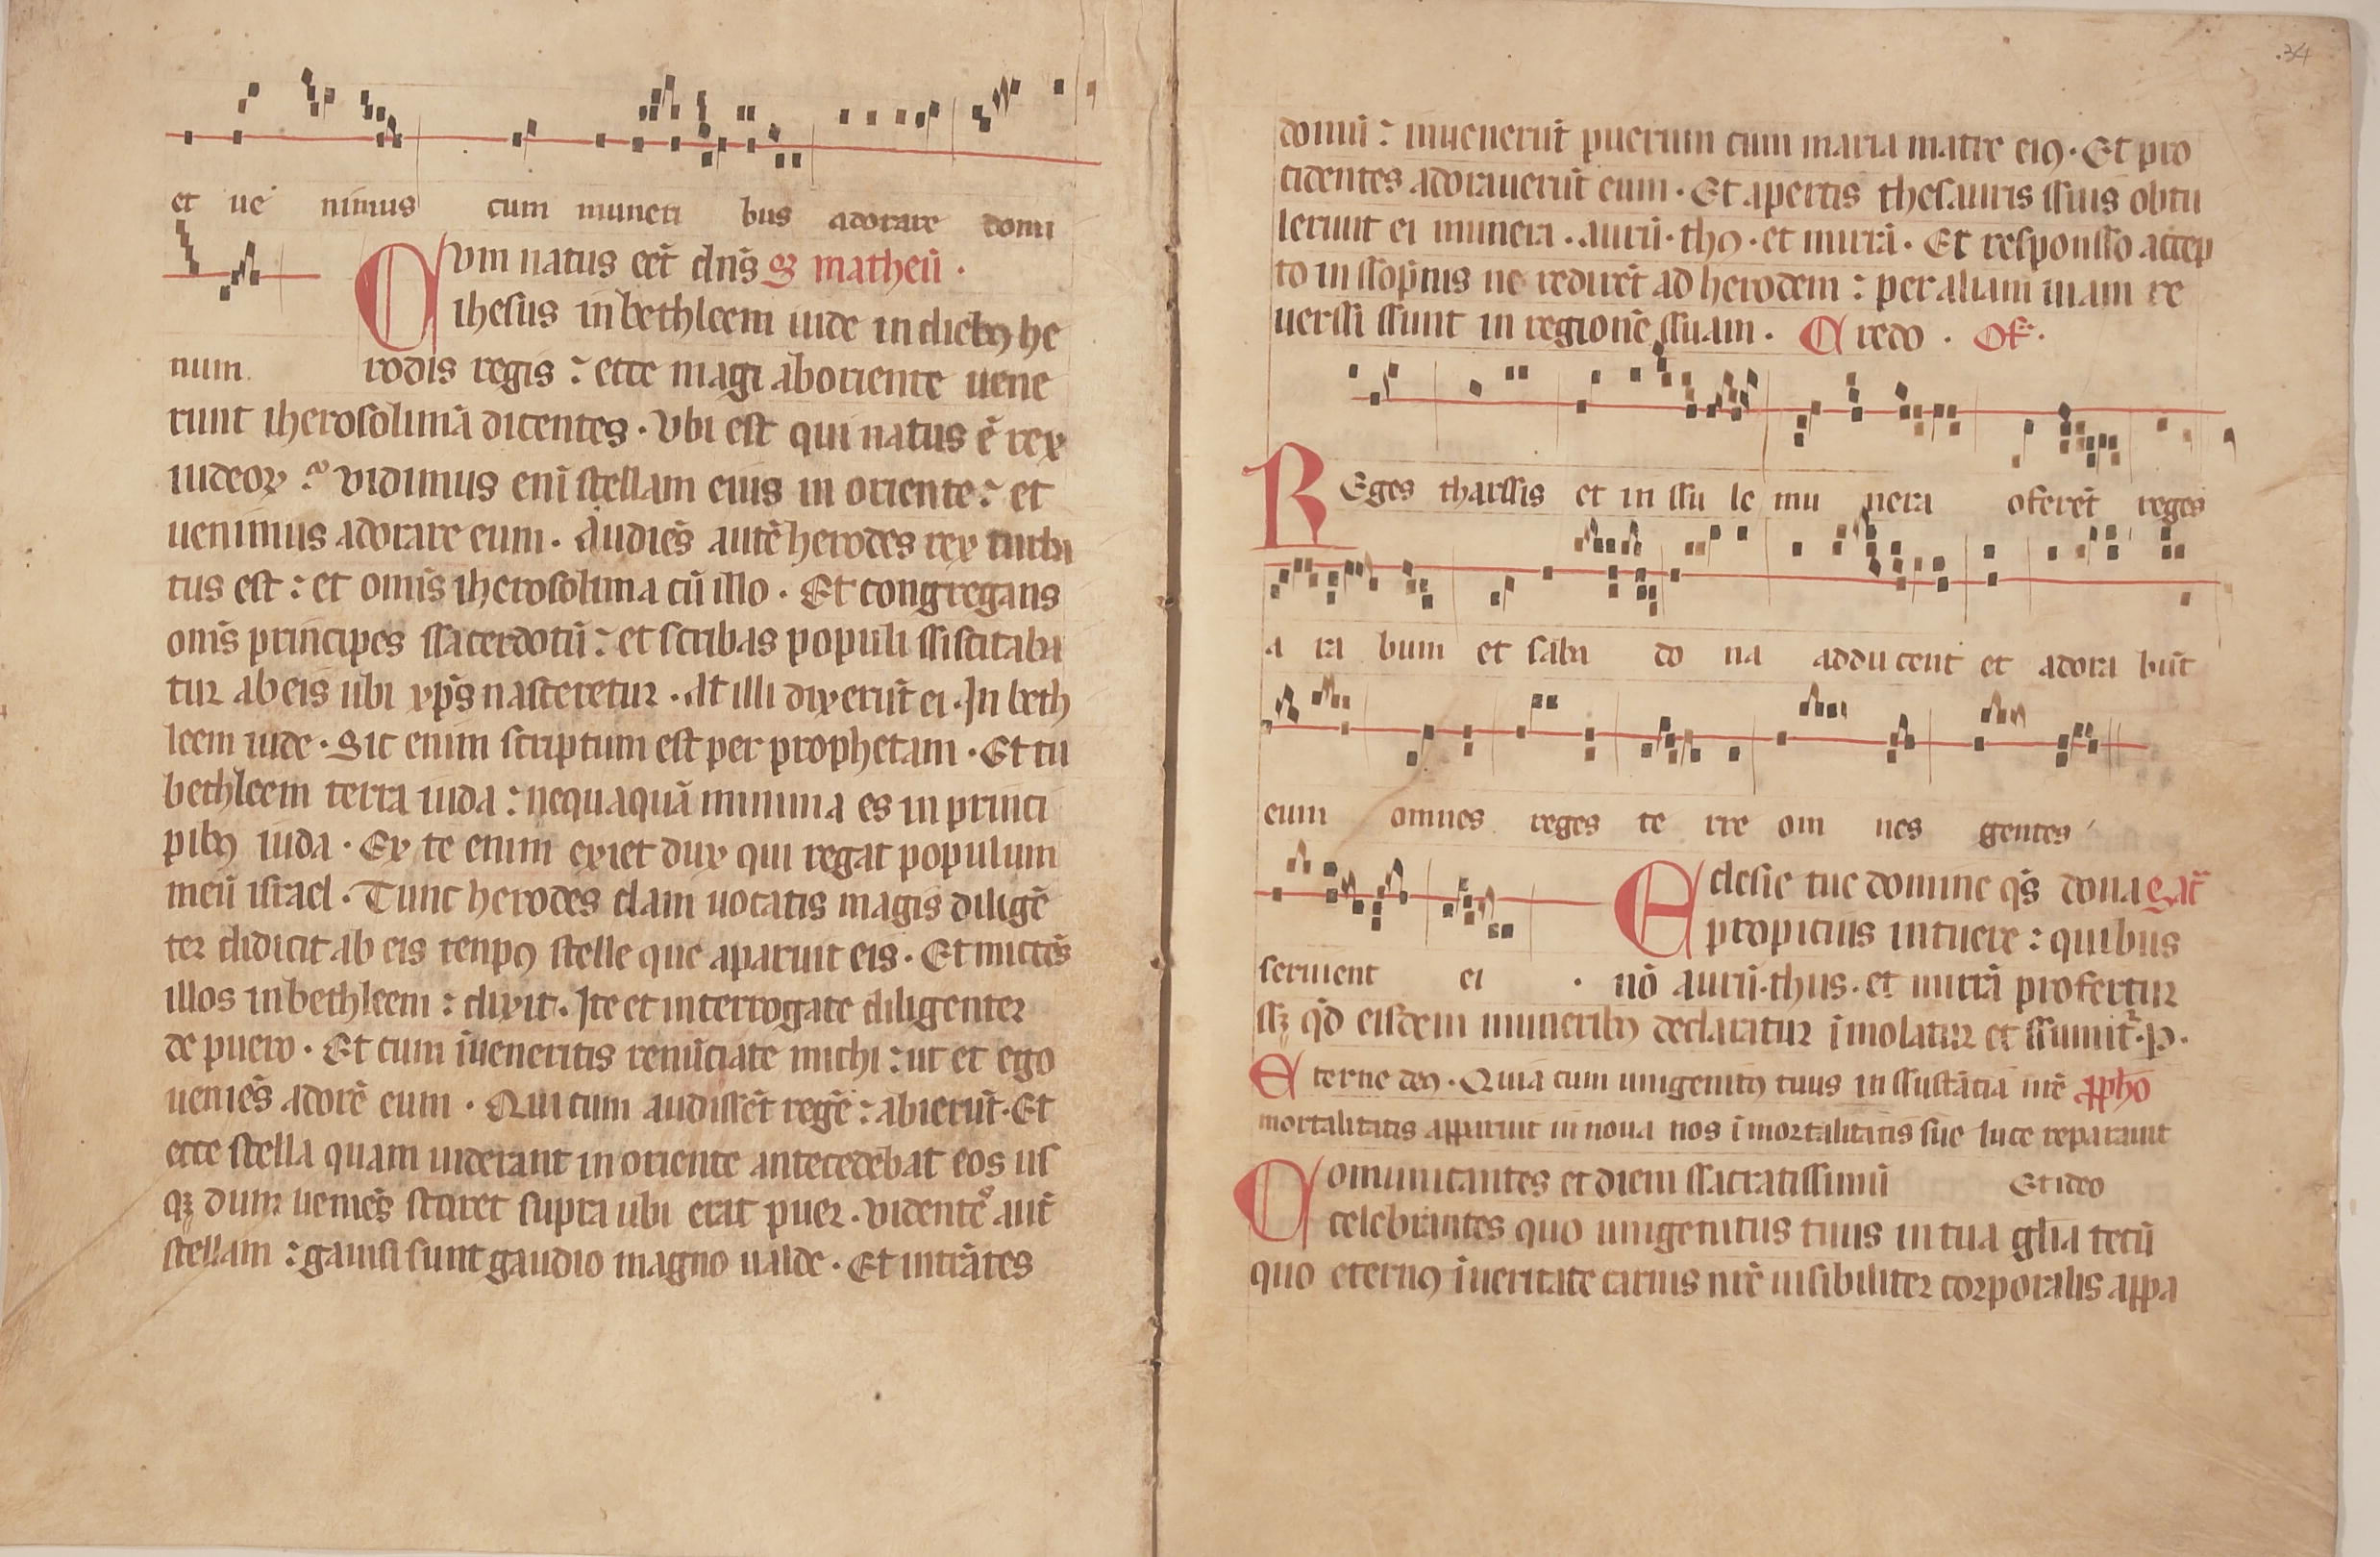 et ue nimus cum muneri bus adorare domi
Cvm natus eēt dn̄s sꝫ matheū ·
ihesus in bethleem iude in diebꝰ he
num rodis regis : ecce magi ab oriente uene
runt iherosolimā dicentes · Vbi est qui natus ē rex
iudeoꝝ ? vidimus eni stellam eius in oriente : et
uenimus adorare eum · Audiēs autē herodes rex turba
tus est : et omīs iherosolima cū illo · Et congregans
om̄s principes ssacerdotū : et scribas populi ssiscitaba
tur ab eis ubi xp̄s nasceretur · At illi dixerūt ei · In beth
leem iude · Sic enim scriptum est per prophetam · Et tu
bethleem terra iuda : nequaquā minima es in princi
pibꝰ iuda · Ex te enim exiet dux qui regat populum
meū israel · Tunc herodes clam uocatis magis diligē
ter didicit ab eis tenpꝰ stelle que aparuit eis · Et mictēs
illos in bethleem : dixit · Ite et interrogate diligenter
de puero · Et cum īueneritis renūciate michi : ut et ego
ueniēs adorē eum · Qui cum audissēt regē : abierūt · Et
ecce stella quam uiderant in oriente antecedebat eos us
qꝫ dum ueniēs staret supra ubi erat puer · vidente᷒ aut̄
stellam : gauisi sunt gaudio magno ualde · Et intrātes
34
domū : inuenerūt puerum cum maria matre eiꝰ · Et pro
cidentes adorauerūt eum · Et apertis thesauris ssuis obtu
lerunt ei munera · aurū · thꝰ · et mirrā · Et responsso accep
to in ssop̄nis ne redirēt ad herodem : per aliam uiam re
uerssi ssunt in regionē ssuam · Credo · Of ·
REges tharssis et in ssu le mu nera oferēt reges
a ra bum et saba do na adducent et adora būt
eum omnes reges te rre om nes gentes
seruient ei · Eclesie tue domine qs̄ dona Secat̄
propicius intuere : quibus
nō aurū · thus · et mirrā profertur
ssꝫ qd̄ eisdem muneribꝰ declaratur īmolatur et ssumit̄ · p ·
Eterne deꝰ · Quia cum unigenitꝰ tuus in ssustātia nr̄e p̄pho
mortalitatis apparuit in noua nos īmortalitatis sue luce reparauit
Comunicantes et diem ssacratissimū Et ideo
celebrantes quo unigenitus tuus in tua glia tecū
quo eternꝰ ī ueritate carnis nr̄e uisibiliter corporalis appa